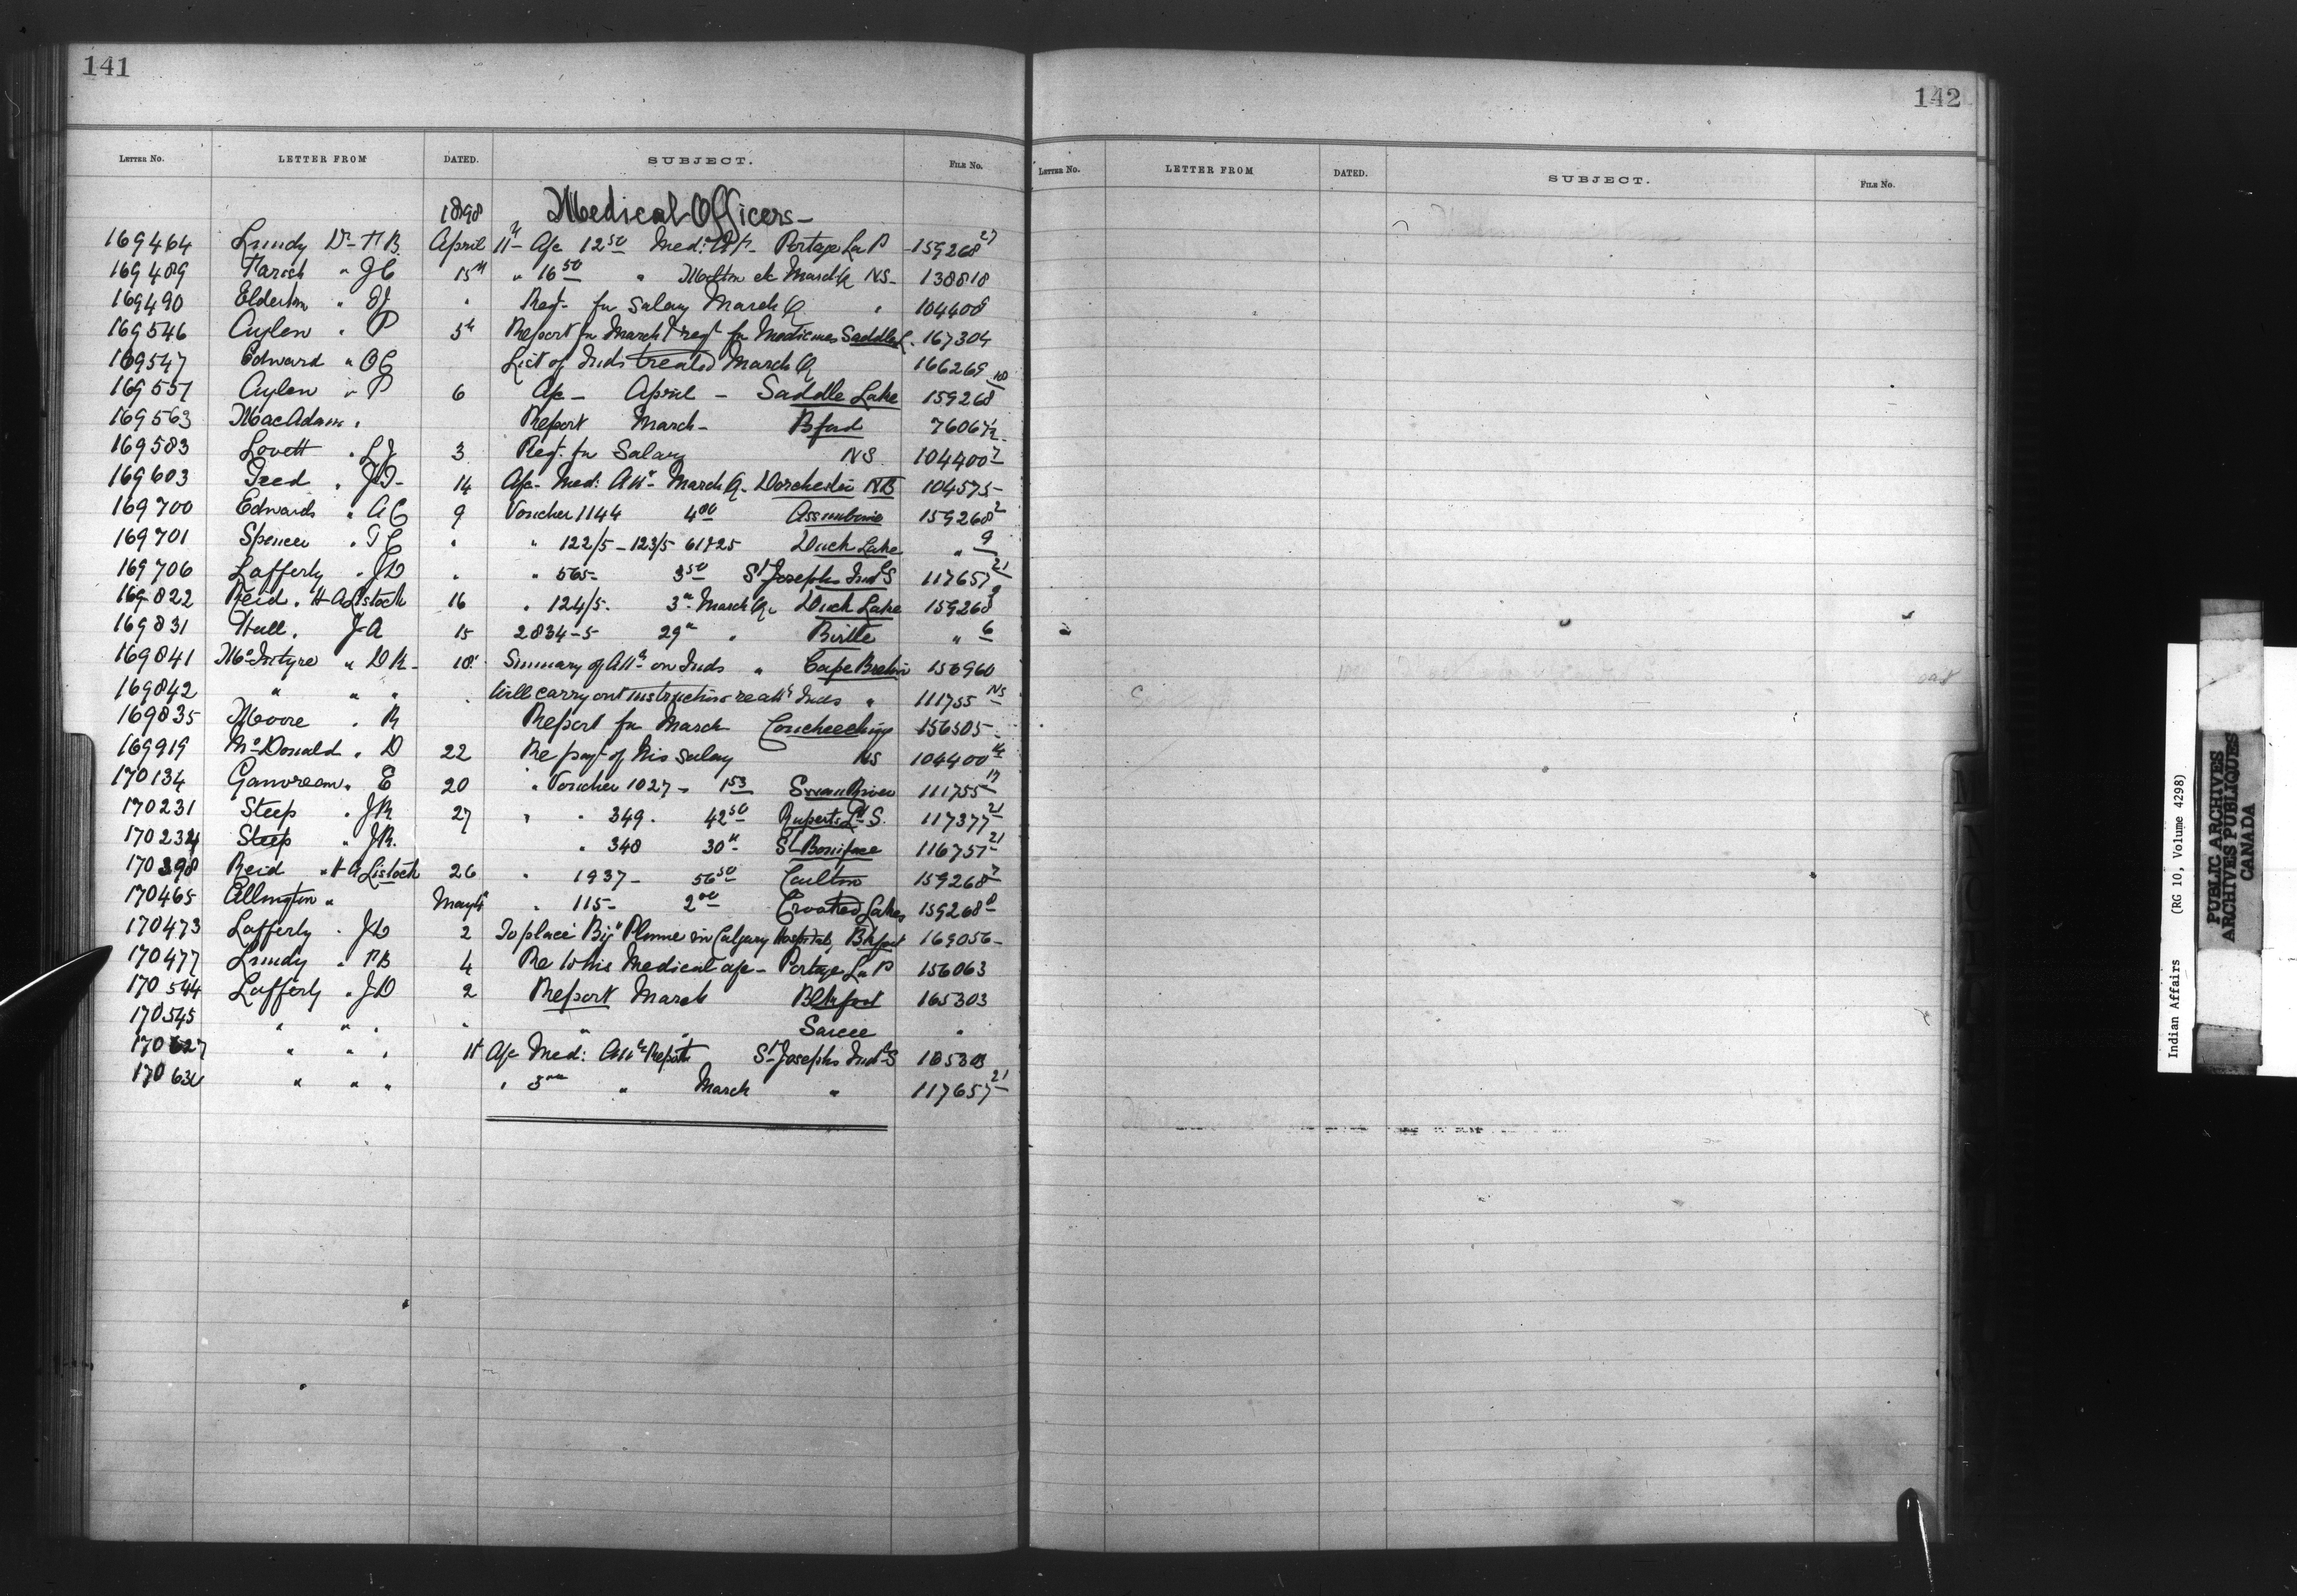 141
LETTER NO. LETTER FROM DATED. SUBJECT. FILE NO.
1898 Medical Officers-
169464 Lundy Dr- F.B. April 11th A/c 12 50 Med: Att- Portage La P 159268 27
169489 Farish " J C 15th " 16 50 " etc March Q NS- 138818
169490 Elderkin " Reqt- for Salary March Q " 104400 8
169546 Aylen " P 5th Report for March & reqt for Medicines Saddle L. 167304
169547 Edward " O C List of Inds treated March Q 166269
169551 Aylen " P 6 A/c- April - Saddle Lake 159268 10
169563 MacAdam " Report March- Bford 76067/2
169583 Lovett " L J 3 Reqt. for Salary NS 104400 7
169603 Teed " 14 A/c- Med: Att- March Q- Dorchester NB 104575-
169700 Edwards " A C 9 Voucher 1144 4 00 Assiniboine 159268 2
169701 Spencer " T C " " 122/5-123/5 61825 Duck Lake " 9
169706 Lafferty " J D " " 565- 3 50 St Josephs Indl S 117657 21
169822 Reid " H A Listock 16 " 124/5- 3 March Q- Duck Lake 159268 9
169831 Hall " J A 15 2834-5 29 " Birtle " 6
169841 McIntyre " D K- 18 Summary of Att on Inds " Cape Breton 156960
169842 " " " " Will carry out instructions re att Inds " 111755 NS
169835 Moore " R Report for March Couchiching 156505-
169919 McDonald " D 22 Re payt of his salary NS 104400 14
170134 Ganvreau " E 20 " Voucher 1027- 1 53 Swan River 111755 17
170231 Steep " J R 27 " " 349. 42 50 Ruperts Ld S. 117377 21
170232 Steep " J R. " 348 30 St Boniface 116757 21
170398 Reid " H A Listock 26 " 1937- 56 50 Carlton 159268 7
170465 Allington " May 4 " 115- 2 00 Crooked Lakes 159268 8
170473 Lafferty " J D 2 To place "Big" Plume in Calgary Hospital, Bkfoot 169056-
170477 Lundy " F B 4 Re to his Medical a/c- Portage La P 156063
170544 Lafferty " J D 2 Report March Blkfoot 165303
170545 " " " " " " Sarcee "
170627 " " " 11 A/c Med: Att & Report St Josephs Indl S 165303
170632 " " " " 3 " March " 117657 21
142
LETTER NO. LETTER FROM DATED. SUBJECT. FILE NO.
Indian Affairs (RG 10, Volume 4298)
PUBLIC ARCHIVES
ARCHIVES PUBLIQUES
CANADA